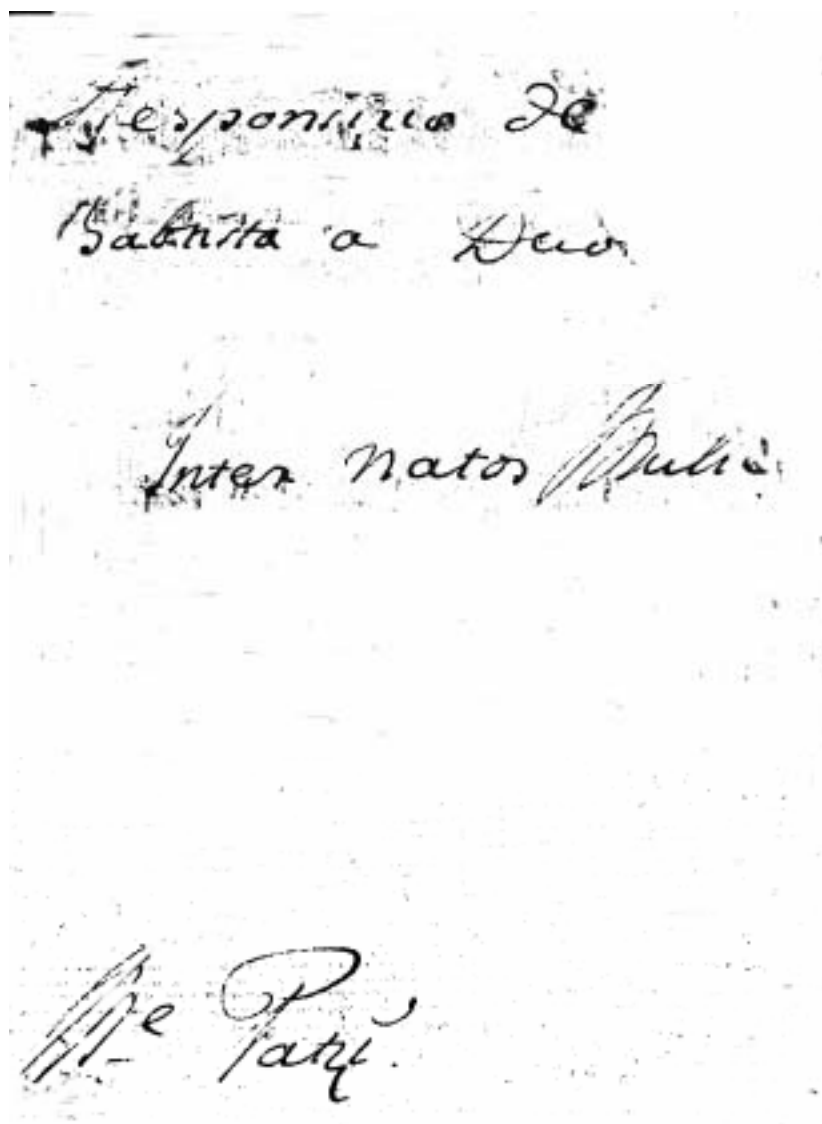 Responsorio de
Babtista a Duo
Inter Natos Mulie
Me Patri.